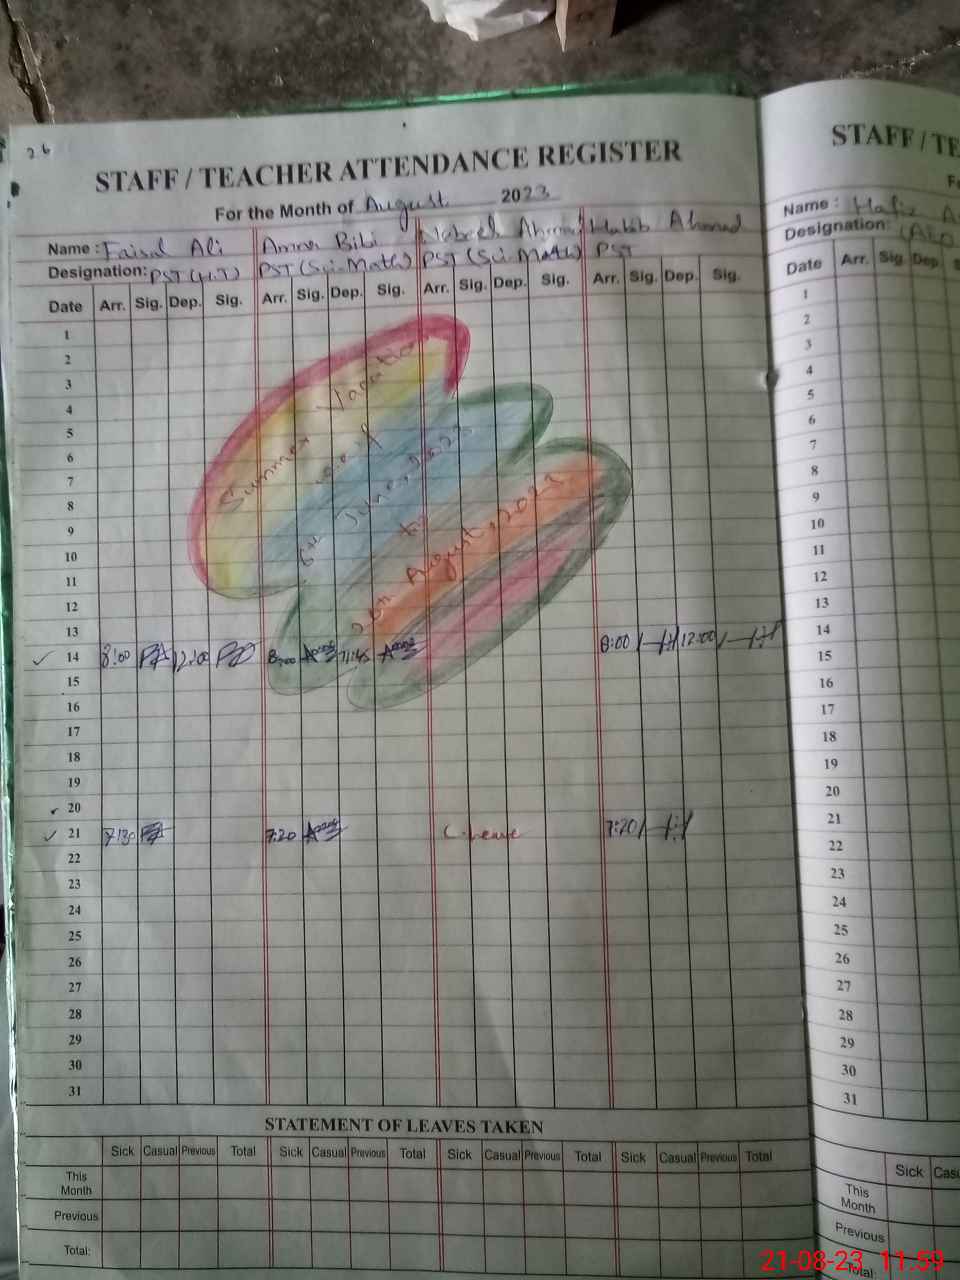 26
STAFF / TEACHER ATTENDANCE REGISTER
For the Month of August 2023
Name : Faisal Ali Amna Bibi Nabeel Ahmad Habib Ahmad
Designation: PST (H.T) PST (Sci-Math) PST (Sci-Math) PST
Date Arr. Sig. Dep. Sig. Arr. Sig. Dep. Sig. Arr. Sig. Dep. Sig. Arr. Sig. Dep. Sig.
1
2
3
4
5
6
7
8
9
10
11
12
13
14 8:00 12:00 8:00 11:45 8:00 12:00
15
16
17
18
19
20
21 7:30 7:20 C-leave 7:20
22
23
24
25
26
27
28
29
30
31
Summer Vacation
June, 2023
to
August, 2023
STATEMENT OF LEAVES TAKEN
Sick Casual Previous Total Sick Casual Previous Total Sick Casual Previous Total Sick Casual Previous Total
This Month
Previous
Total:
STAFF / TE
Name : Hafiz
Designation:
Date Arr. Sig. Dep.
1
2
3
4
5
6
7
8
9
10
11
12
13
14
15
16
17
18
19
20
21
22
23
24
25
26
27
28
29
30
31
Sick Casu
This Month
Previous
Total:
21-08-23 11:59